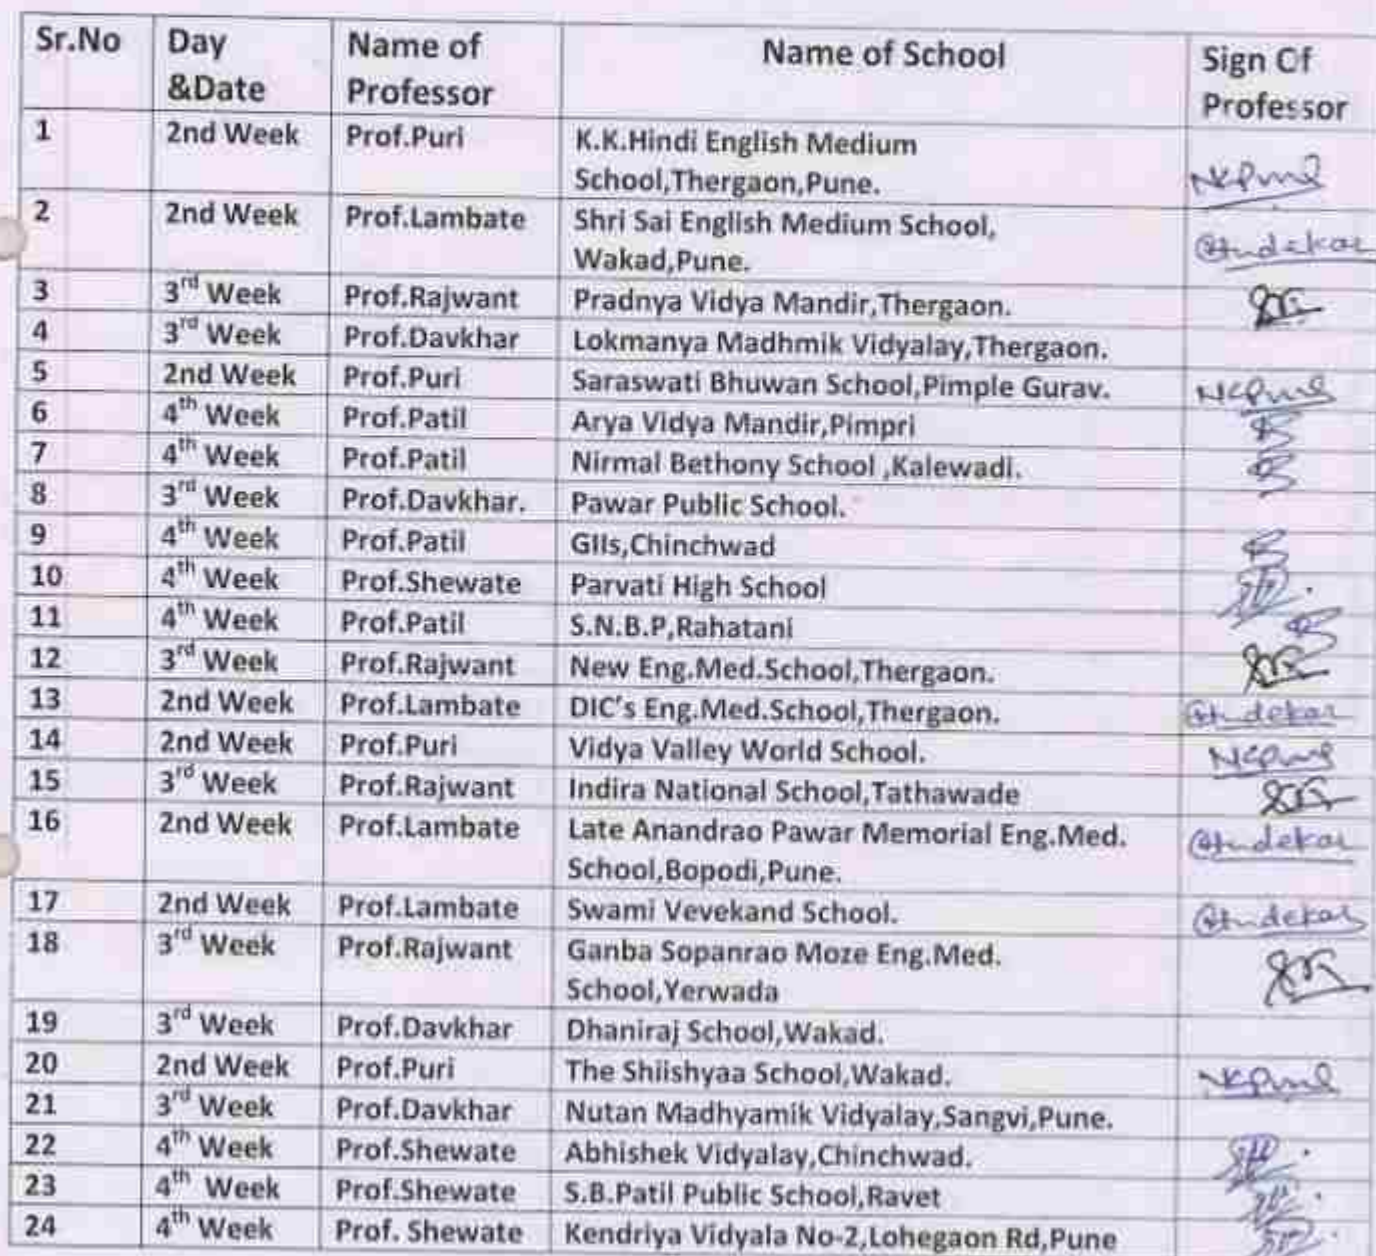 Sr.No Day Name of Name of School Sign Of
&Date Professor Professor
1 2nd Week Prof.Puri K.K.Hindi English Medium
School,Thergaon,Pune.
2 2nd Week Prof.Lambate Shri Sai English Medium School,
Wakad,Pune.
3 3rd Week Prof.Rajwant Pradnya Vidya Mandir,Thergaon.
4 3rd Week Prof.Davkhar Lokmanya Madhmik Vidyalay,Thergaon.
5 2nd Week Prof.Puri Saraswati Bhuwan School,Pimple Gurav.
6 4th Week Prof.Patil Arya Vidya Mandir,Pimpri
7 4th Week Prof.Patil Nirmal Bethony School ,Kalewadi.
8 3rd Week Prof.Davkhar. Pawar Public School.
9 4th Week Prof.Patil GIIs,Chinchwad
10 4th Week Prof.Shewate Parvati High School
11 4th Week Prof.Patil S.N.B.P,Rahatani
12 3rd Week Prof.Rajwant New Eng.Med.School,Thergaon.
13 2nd Week Prof.Lambate DIC's Eng.Med.School,Thergaon.
14 2nd Week Prof.Puri Vidya Valley World School.
15 3rd Week Prof.Rajwant Indira National School,Tathawade
16 2nd Week Prof.Lambate Late Anandrao Pawar Memorial Eng.Med.
School,Bopodi,Pune.
17 2nd Week Prof.Lambate Swami Vevekand School.
18 3rd Week Prof.Rajwant Ganba Sopanrao Moze Eng.Med.
School,Yerwada
19 3rd Week Prof.Davkhar Dhaniraj School,Wakad.
20 2nd Week Prof.Puri The Shiishyaa School,Wakad.
21 3rd Week Prof.Davkhar Nutan Madhyamik Vidyalay,Sangvi,Pune.
22 4th Week Prof.Shewate Abhishek Vidyalay,Chinchwad.
23 4th Week Prof.Shewate S.B.Patil Public School,Ravet
24 4th Week Prof. Shewate Kendriya Vidyala No-2,Lohegaon Rd,Pune